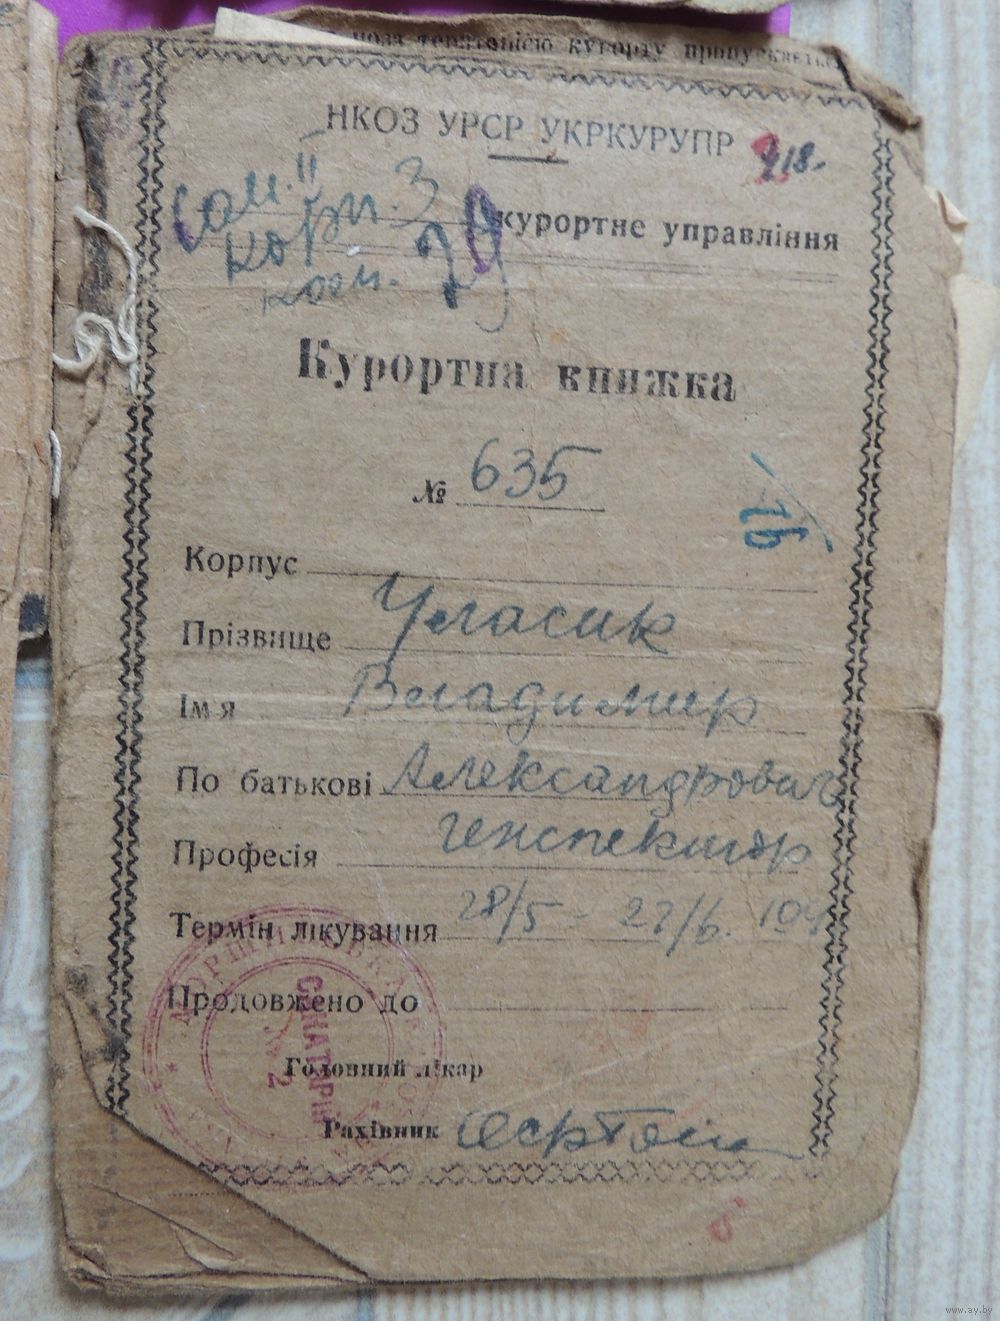 територією курорту пропускает
НКОЗ УРСР УКРКУРУПР
718.
Сан. II
курортне управління
Корп. 3
ком. 29
Курортна книжка
№ 635
16
Корпус
Прізвище Уласик
Імя Владимир
По батькові Александрович
Професія инспектор
Термін лікування 28/5 - 27/6.
Продовжено до
САНАТОРІЙ
№ 2
Головний лікар
Рахівник
www.ay.by